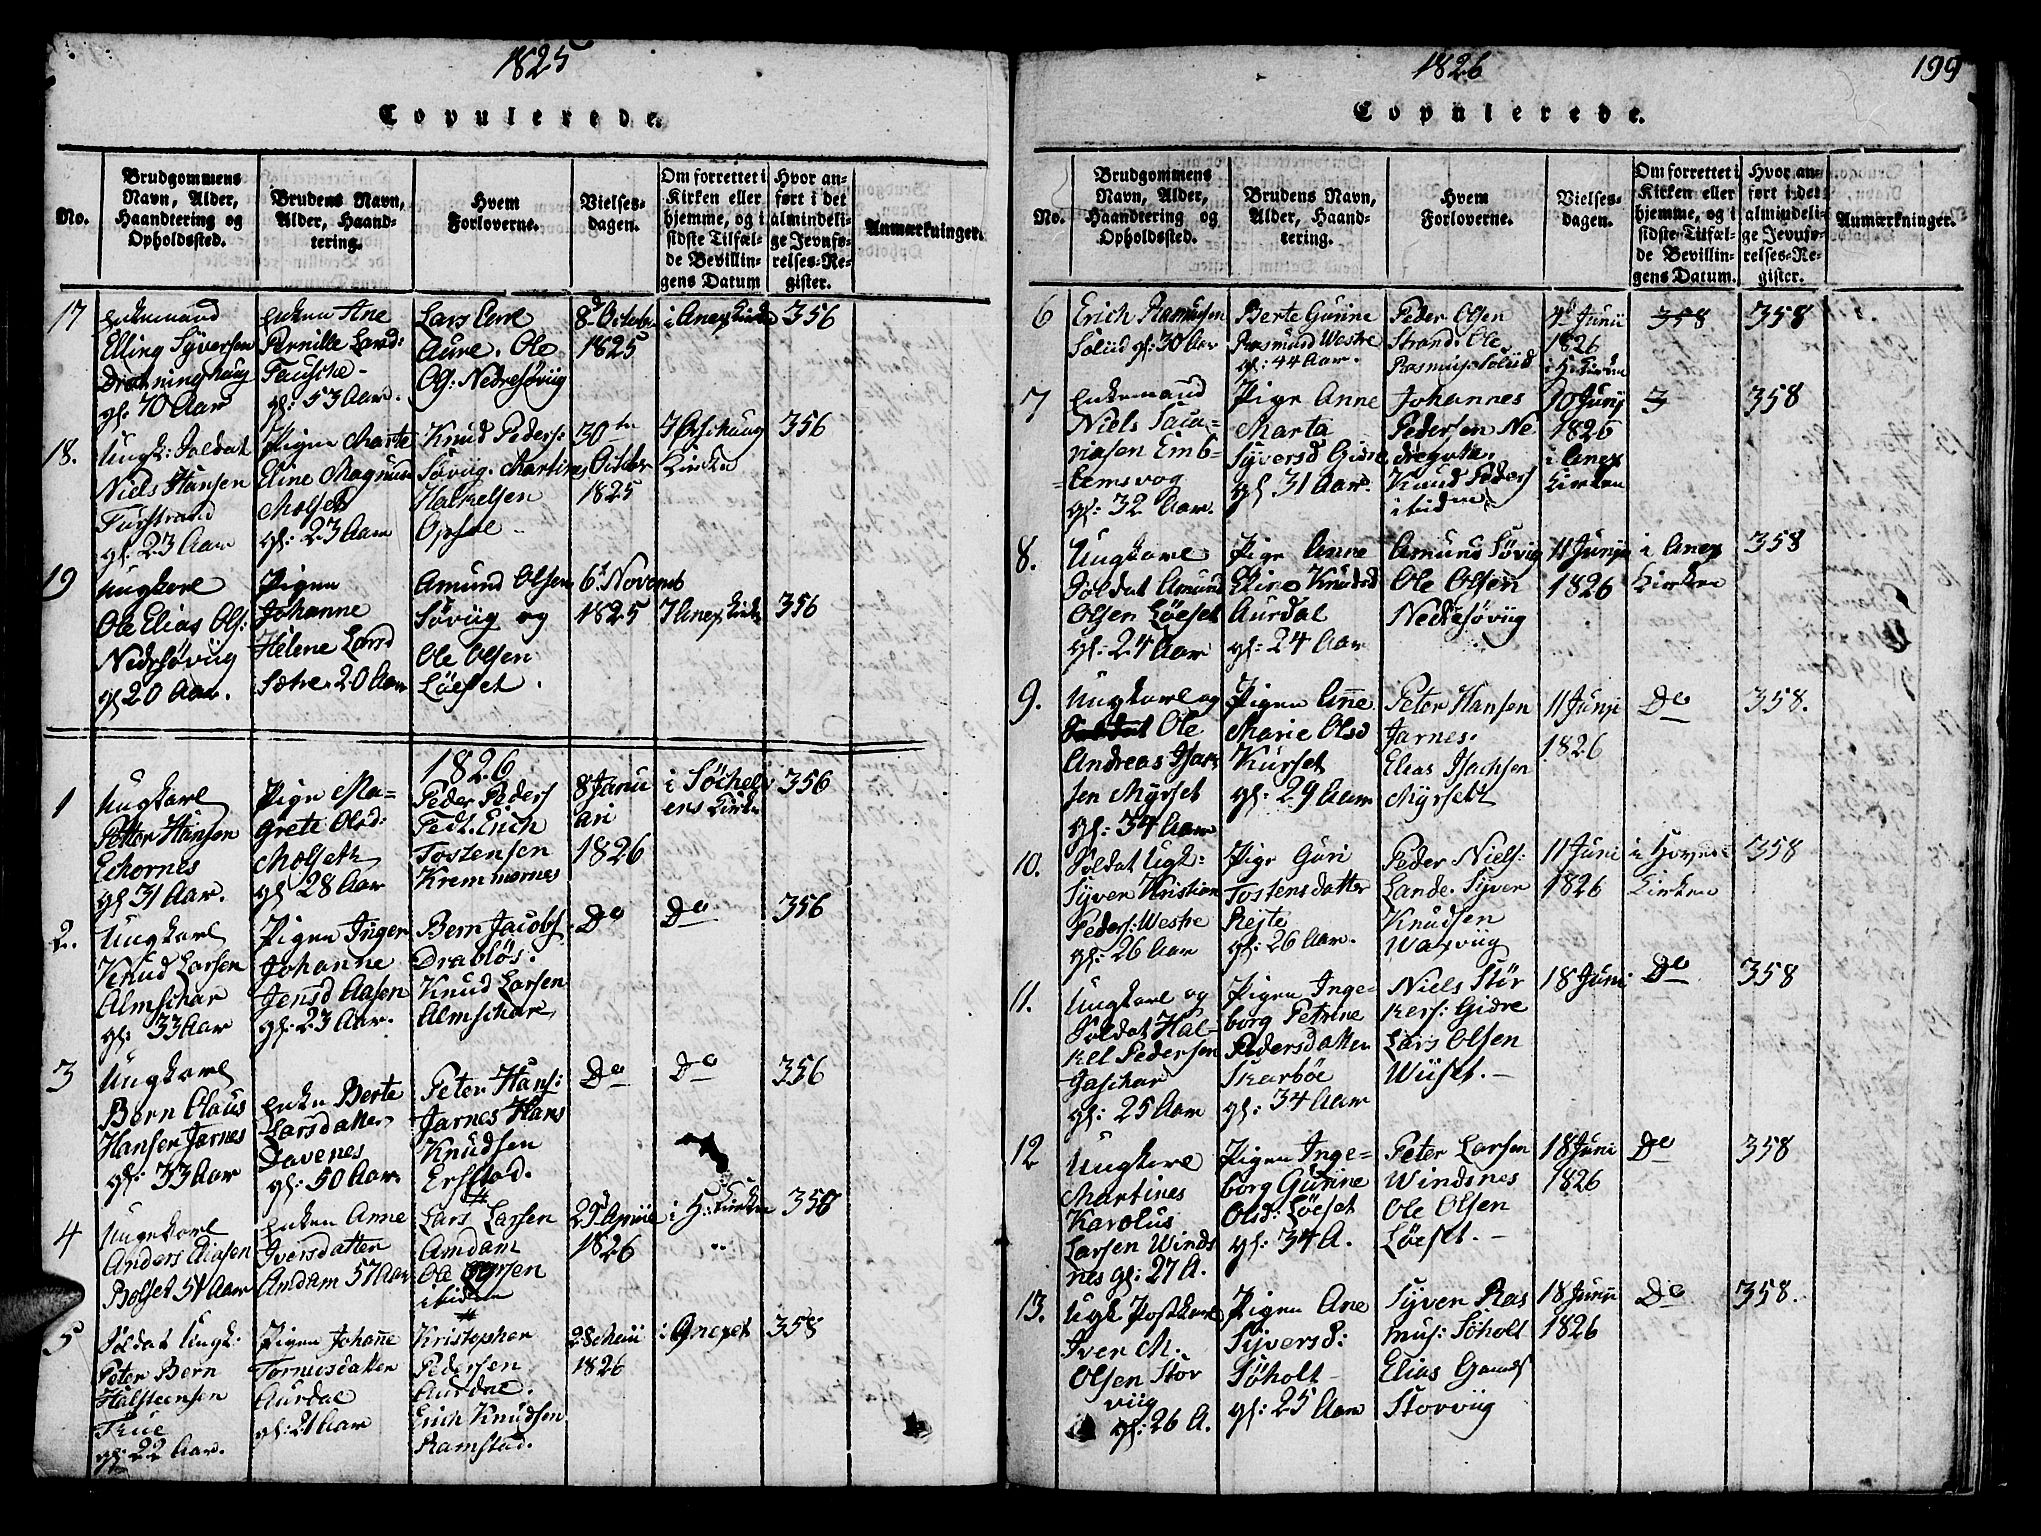 1825
Copulerede.
No.
Brudgommens
Navn, Alder,
Haandtering og
Opholdssted.
Brudens Navn,
Alder, Haand-
tering.
Hvem
Forloverne.
Vielses-
dagen.
Om forrettet i
Kirken eller
hjemme, og i
sidste Tilfæl-
de Bevillin-
gens Datum
Hvor an-
ført i det
almindeli-
ge Jevnfø-
relses-Re-
gister.
Anmærkninger.
17
Enkemand
Elling Syversen
gl: 70 Aar
Enken Ane
Pernille Larsd:
Fausche
gl: 53 Aar.
Lars
Aure. Ole
Ols: Nedresøviig
8d Octobr
1825
i Anex Kirke
356
18.
Ungk: Soldat
Niels Hansen
gl: 23 Aar
Pigen Marte
Eline Magnus
Molset
gl: 23 Aar
Knud Peders:
Søviig. Martin
Opsal
30te
October
1825
I Ørschoug
Kirke
356
19
Ungkarl
Ole Elias Ols:
Nedresøviig
gl 20 Aar.
Pigen
Johanne
Helene Larsd
Sætre 20 Aar
Amund Olsen
Søviig og
Ole Olsen
Löeset.
6t Novemb
1825
I Anex Kirke
356
1826
1
Ungkarl
Petter Hansen
Echornes
gl 31 Aar.
Pige Ma-
grete Olsd:
Molseth
gl: 28 Aar
Peder Peders
Fedt. Erich
Tostensen
Kremmernes
8 Janu
ari
1826
i Söchel
ens Kirke
356
2.
Ungkarl
Knud Larsen
Almschar
gl: 33 Aar
Pigen Inger
Johanne
Jensd Aasen
gl: 23 Aar.
Bern Jacobs
Drabløs.
Knud Larsen
Almschar
Do
Do
356
3
Ungkarl
Bern Claus
Hansen Jarnes
gl: 33 Aar
Enken Berte
Larsdatter
Davenes
gl: 50 Aar.
Peter Hans:
Jarnes Hans
Knudsen
Erstad.
Do
Do
356
4
Ungekarl
Anders Eliasen
Bolset 54 Aar
Enken Anne
Iversdatter
Amdam 57 Aar
Lars Larsen
Amdam
Ole Larsen
ibidem
25 Aprile
1826
i H: Kirken
358
5
Soldat Ungk:
Peter Bern
Halsteensen
Frue
gl: 22 Aar.
Pigen Johañe
Aurdal
gl: 21 Aar
Kristopher
Pedersen
Aurdal.
Erich Knudsen
Ramstad.
28 Maii
1826
i Anexet
358
1826
199
Copulerede.
No.
Brudgommens
Navn, Alder,
Haandtering og
Opholdssted.
Brudens Navn,
Alder, Haand-
tering.
Hvem
Forloverne.
Vielses-
dagen.
Om forrettet i
Kirken eller
hjemme, og i
sidste Tilfæl-
de Bevillin-
gens Datum.
Hvor an-
ført i det
almindeli-
ge Jevnfø-
relses-Re-
gister.
Anmærkninger.
6
Erich Rasmusen
Solud gl: 30 Aar
Berte Gurine
Rasmusd Westre
gl: 44 Aar.
Peder Olsen
Strand: Ole
Rasmus: Solud
4d Junii
1826
i H Kirken
358
358
7
Enkemand
Niels Saca-
riasen Emb-
lemsvog
gl: 32 Aar.
Pige Anne
Marta
Syversd Gidre
gl 31 Aar.
Johannes
Pedersen Ne
Knud Peders
ibidem
10 Junij
1826
i Anex
Kirken
3
358
8.
Ungkarl
Soldat Amund
Olsen Löeset
gl: 24 Aar
Pige Anne
Eline Knudsd
Aurdal
gl: 24 Aar
Amund Søviig
Ole Olsen
Nedresøviig
11 Junji
1826
i Anex
Kirken
358
9.
Ungkarl og
Soldat Ole
Andreas Isac
sen Myrset
gl: 34 Aar
Pigen Añe
Marie Olsd
Kurset
gl: 29 Aar
Peter Hansen
Jarnes.
Elias Isachsen
Myrseth
11 Junji
1826
Do
358.
10.
Soldat Ugk:
Syver Kristian
Peders: Westre
gl: 26 Aar
Pige Guri
Tostensdatter
Rejte
gl: 26 Aar.
Peder Niels:
Lande. Syver
Knudsen
Warviig
11 Juni
1826
i Hoved
Kirken
358
11.
Ungkarl og
Soldat Hal-
kel Pedersen
Gaschar
gl: 25 Aar
Pigen Inge-
borg Petrine
Pedersdatter
Skarböe
gl: 34 Aar
Niels Stör
kers: Gidre
Lars Olsen
Wiiset.
18 Juni
Do
358
12
Ungkarl
Martines
Karolus
Larsen Winds
nes gl: 27 A.
Pigen Inge-
borg Gurine
Olsd: Löeset
gl: 34 A.
Peter Larsen
Windsnes
Ole Olsen
Löeset.
18 Juni
1826
Do
358
13.
Ugk Postkarl
Iver M.
Olsen Stor
viig
gl: 26 A.
Pigen Ane
Syversd:
Söholt
gl: 25 Aar
Syver Ras
mus: Söholt
Elias
Storviig
18 Junii
1826
Do
358.